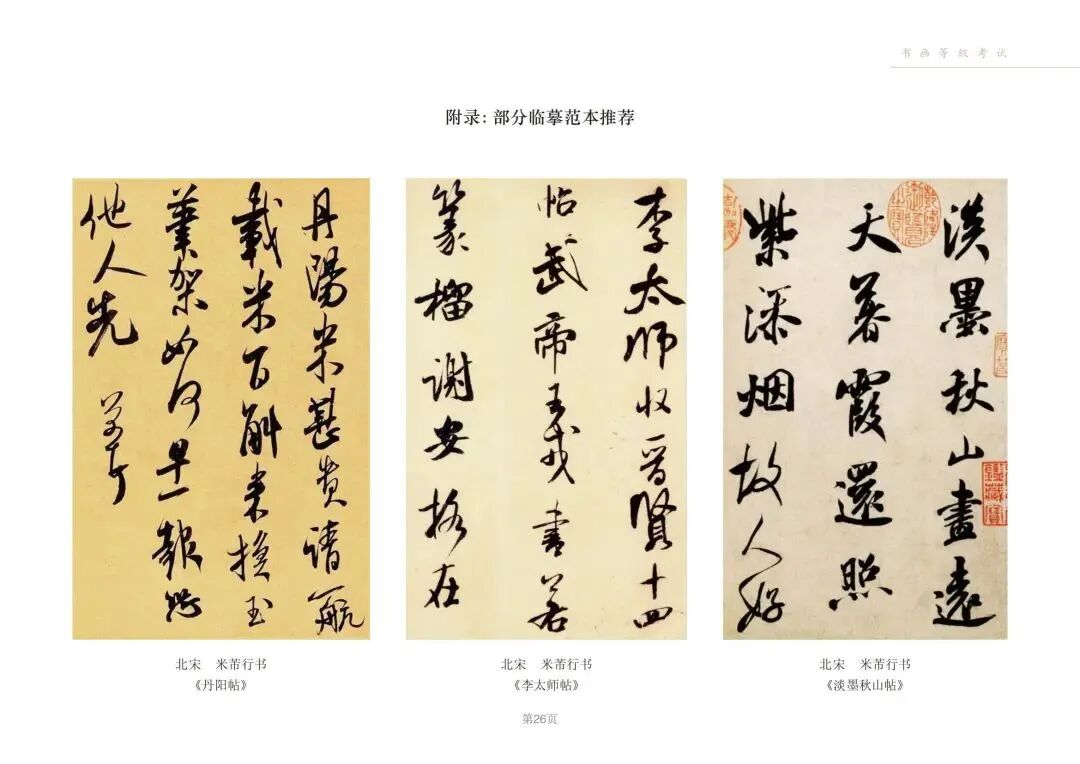 书画等级考试
附录：部分临摹范本推荐
丹陽米甚貴請一航
載米百斛来換玉
筆架如何早一報恐
他人先 芾頓首
北宋 米芾行书
《丹阳帖》
李太師收晉賢十四
帖武帝王戎書若
篆籀謝安格在
北宋 米芾行书
《李太师帖》
淡墨秋山畫遠
天暮霞還照
紫添烟故人好
北宋 米芾行书
《淡墨秋山帖》
第26页